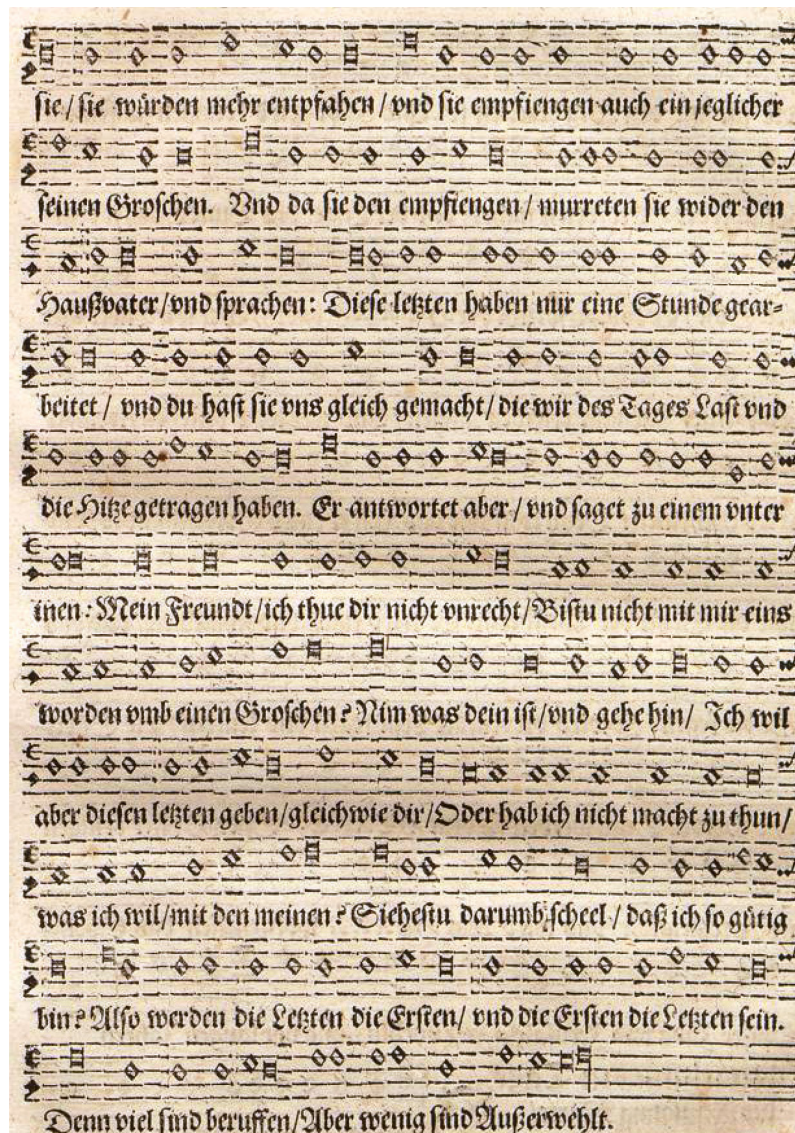 sie / sie würden mehr entpfahen / vnd sie empfiengen auch ein jeglicher
seinen Groschen. Vnd da sie den empfiengen / murreten sie wider den
Haußvater / vnd sprachen: Diese letzten haben nur eine Stunde gear=
beitet / vnd du hast sie vns gleich gemacht / die wir des Tages Last vnd
die Hitze getragen haben. Er antwortet aber / vnd saget zu einem vnter
inen: Mein Freundt / ich thue dir nicht vnrecht / Bistu nicht mit mir eins
worden vmb einen Groschen? Nim was dein ist / vnd gehe hin / Ich wil
aber diesen letzten geben / gleich wie dir / Oder hab ich nicht macht zu thun /
was ich wil / mit den meinen? Siehestu darumb scheel / daß ich so gütig
bin? Also werden die Letzten die Ersten / vnd die Ersten die Letzten sein.
Denn viel sind beruffen / Aber wenig sind Außerwehlt.